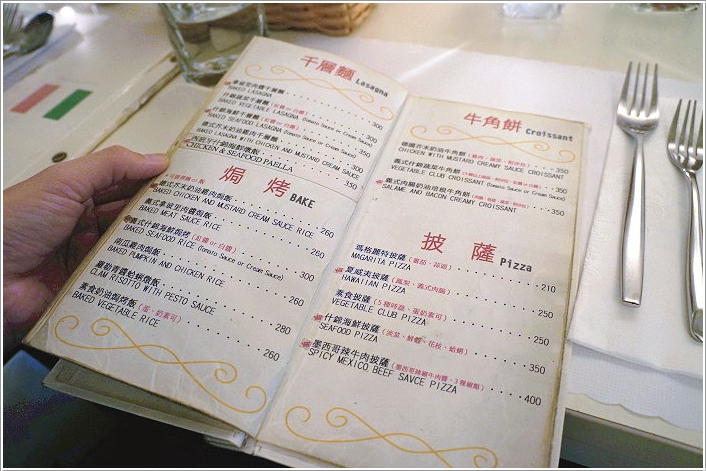 千層麵 Lasagna
拿坡里肉醬千層麵 300
BAKED LASAGNA
什錦蔬菜千層麵 (紅醬 or 白醬) 300
BAKED VEGETABLE LASAGNA (Tomato Sauce or Cream Sauce)
什錦海鮮千層麵 (紅醬 or 白醬) 350
BAKED SEAFOOD LASAGNA (Tomato Sauce or Cream Sauce)
德式芥末奶油雞肉千層麵 300
BAKED LASAGNA WITH CHICKEN AND MUSTARD CREAM SAUCE
西班牙什錦海鮮燉飯 350
CHICKEN & SEAFOOD PAELLA
焗烤 BAKE
德式芥末奶油雞肉焗飯 260
BAKED CHICKEN AND MUSTARD CREAM SAUCE RICE
義式拿坡里肉醬焗飯 260
BAKED MEAT SAUCE RICE
義式什錦海鮮焗烤 (紅醬 or 白醬) 300
BAKED SEAFOOD RICE (Tomato Sauce or Cream Sauce)
南瓜雞肉焗飯 260
BAKED PUMPKIN AND CHICKEN RICE
羅勒青醬蛤蜊燉飯 280
CLAM RISOTTO WITH PESTO SAUCE
素食奶油焗烤飯 (蛋、奶素可) 260
BAKED VEGETABLE RICE
牛角餅 Croissant
德國芥末奶油牛角餅 350
CHICKEN WITH MUSTARD CREAMY SAUCE CROISSANT
義式什錦蔬菜牛角餅 350
VEGETABLE CLUB CROISSANT (Tomato Sauce or Cream Sauce)
義式肉腸奶油培根牛角餅 350
SALAME AND BACON CREAMY CROISSANT
披薩 Pizza
瑪格麗特披薩 (蕃茄、蒜頭) 210
MAGARITA PIZZA
夏威夷披薩 (鳳梨、義式肉腸) 250
HAWAIIAN PIZZA
素食披薩 (5種時蔬、蛋奶素可) 250
VEGETABLE CLUB PIZZA
什錦海鮮披薩 (淡菜、鮮蝦、花枝、蛤蜊) 350
SEAFOOD PIZZA
墨西哥辣牛肉披薩 (墨西哥辣椒牛肉醬、3種椒類) 400
SPICY MEXICO BEEF SAVCE PIZZA